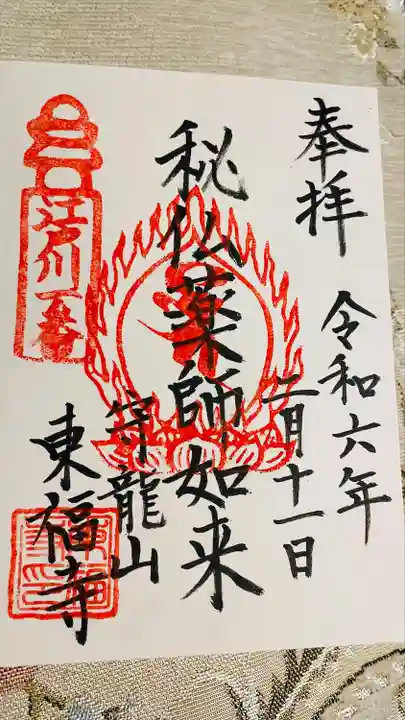 奉拝
令和六年
二月十一日
秘仏薬師如来
守龍山
東福寺
江戸川一番